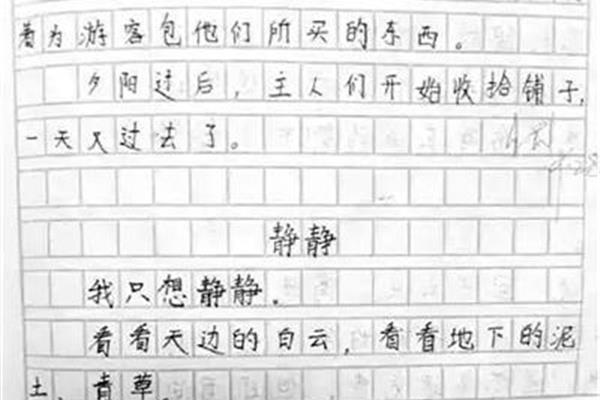 着为游客包他们所买的东西。
夕阳过后，主人们开始收拾铺子，
一天又过去了。
静静
我只想静静。
看看天边的白云，看看地下的泥
土、青草